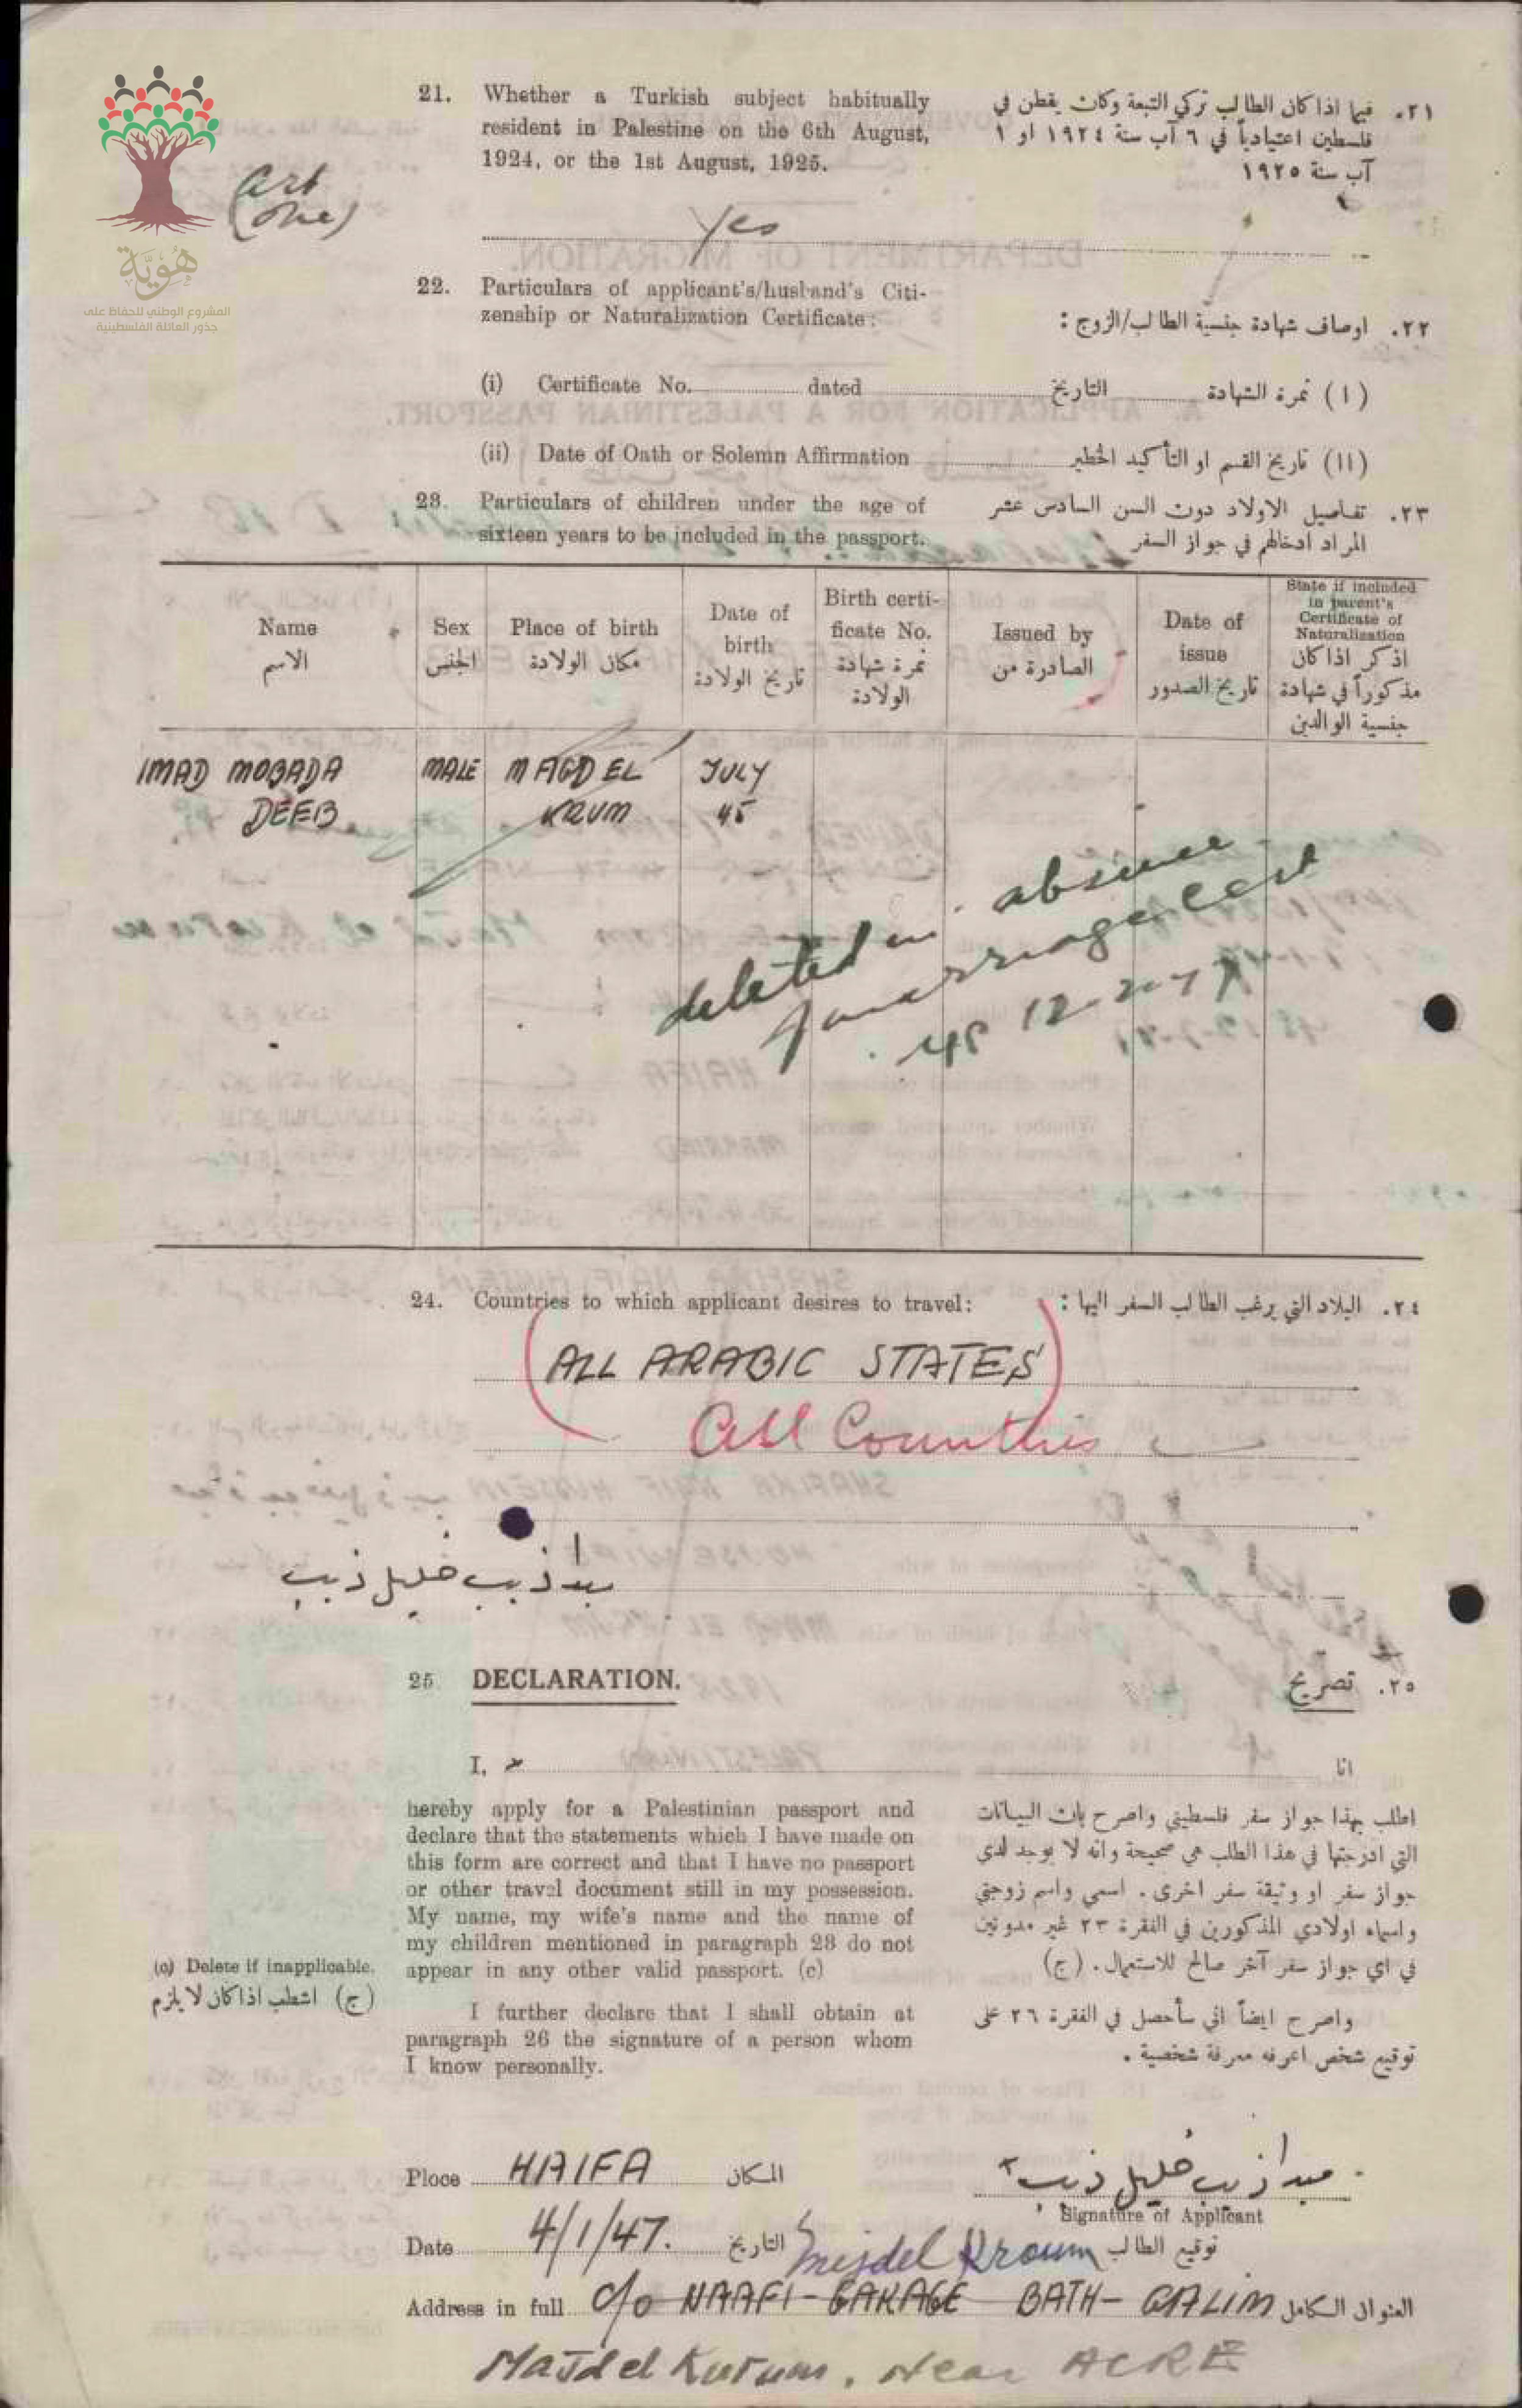 هوية
المشروع الوطني للحفاظ على
جذور العائلة الفلسطينية
Art
(one)
21. Whether a Turkish subject habitually
resident in Palestine on the 6th August,
1924, or the 1st August, 1925.
٢١. فيما اذا كان الطالب تركي التبعة وكان يقطن في
فلسطين اعتيادياً في ٦ آب سنة ١٩٢٤ او ١
آب سنة ١٩٢٥
Yes
22. Particulars of applicant's/husband's Citi-
zenship or Naturalization Certificate:
٢٢. اوصاف شهادة جنسية الطالب/الزوج :
(i) Certificate No. dated التاريخ (١) نمرة الشهادة
(ii) Date of Oath or Solemn Affirmation (١١) تاريخ القسم او التأكيد الخطير
23. Particulars of children under the age of
sixteen years to be included in the passport.
٢٣. تفاصيل الاولاد دون السن السادس عشر
المراد ادخالهم في جواز السفر
Name
الاسم
Sex
الجنس
Place of birth
مكان الولادة
Date of
birth
تاريخ الولادة
Birth certi-
ficate No.
نمرة شهادة
الولادة
Issued by
الصادرة من
Date of
issue
تاريخ الصدور
State if included
in parent's
Certificate of
Naturalization
اذكر اذا كان
مذكوراً في شهادة
جنسية الوالدين
IMAD MOBADA MALE MAGDEL JULY
DEEB KRUM 45
deleted in absence
of marriage cert
12-2-47
24. Countries to which applicant desires to travel:
٢٤. البلاد التي يرغب الطالب السفر اليها :
(ALL ARABIC STATES)
All Countries
مبدا ذيب خليل ذيب
25 DECLARATION.
٢٥. تصريح
I, انا
hereby apply for a Palestinian passport and
declare that the statements which I have made on
this form are correct and that I have no passport
or other travel document still in my possession.
My name, my wife's name and the name of
my children mentioned in paragraph 23 do not
appear in any other valid passport. (c)
اطلب بهذا جواز سفر فلسطيني واصرح بان البيانات
التي ادرجتها في هذا الطلب هي صحيحة وانه لا يوجد لدي
جواز سفر او وثيقة سفر اخرى. اسمي واسم زوجتي
واسماء اولادي المذكورين في الفقرة ٢٣ غير مدونين
في اي جواز سفر آخر صالح للاستعمال. (ج)
(c) Delete if inapplicable.
(ج) اشطب اذا كان لا يلزم
I further declare that I shall obtain at
paragraph 26 the signature of a person whom
I know personally.
واصرح ايضاً اني سأحصل في الفقرة ٢٦ على
توقيع شخص اعرفه معرفة شخصية .
Place HAIFA المكان
مبدا ذيب خليل ذيب
Signature of Applicant
Date 4/1/47. التاريخ Mejdel Kroum توقيع الطالب
Address in full c/o NAAFI-GARAGE BATH-GALIM العنوان الكامل
Majdel Kurum, Near ACRE